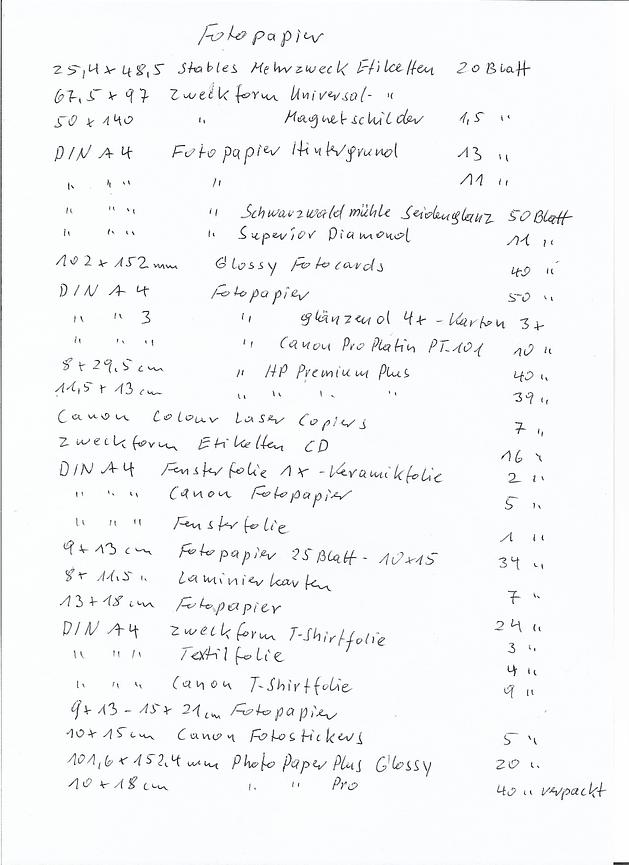 Fotopapier
25,4 x 48,5 Stables Mehrzweck Etiketten 20 Blatt
67,5 x 97 Zweckform Universal- "
50 x 140 " Magnetschilder 1,5 "
DIN A4 Fotopapier Hintergrund 13 "
" " " " 11 "
" " " " Schwarzwald mühle Seidenglanz 50 Blatt
" " " " Superior Diamond 11 "
102 x 152 mm Glossy Fotocards 40 "
DIN A4 Fotopapier 50 "
" " 3 " glänzend 4x - Karton 3x
" " " " Canon Pro Platin PT-101 10 "
8 x 29,5 cm " HP Premium Plus 40 "
11,5 x 13 cm " " " " 39 "
Canon Colour Laser Copiers 7 "
Zweckform Etiketten CD 16 x
DIN A4 Fensterfolie 1x - Keramikfolie 2 "
" " " Canon Fotopapier 5 "
" " " Fensterfolie 1 "
9 x 13 cm Fotopapier 25 Blatt - 10x15 34 "
8 x 11,5 " Laminierkarten 7 "
13 x 18 cm Fotopapier 24 "
DIN A4 Zweckform T-Shirtfolie 3 "
" " " Textilfolie 4 "
" " " Canon T-Shirtfolie 9 "
9 x 13 - 15 x 21 cm Fotopapier
10 x 15 cm Canon Fotostickers 5 "
101,6 x 152,4 mm Photo Paper Plus Glossy 20 "
10 x 18 cm " " Pro 40 " verpackt